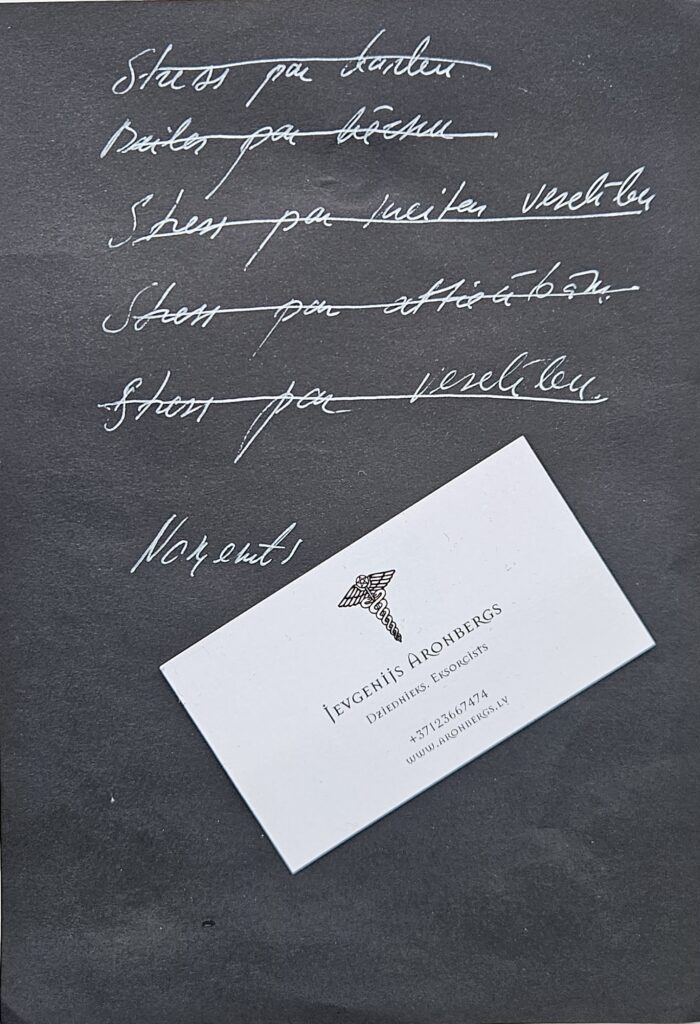 Stress par karleu
Bailes par bērnu
Stress par meitas veselību
Stress par attiecībām.
Stress par veselību.
Noņemts
Jevgenijs Aronbergs
Dziednieks. Eksorcists
+37123667474
www.aronbergs.lv